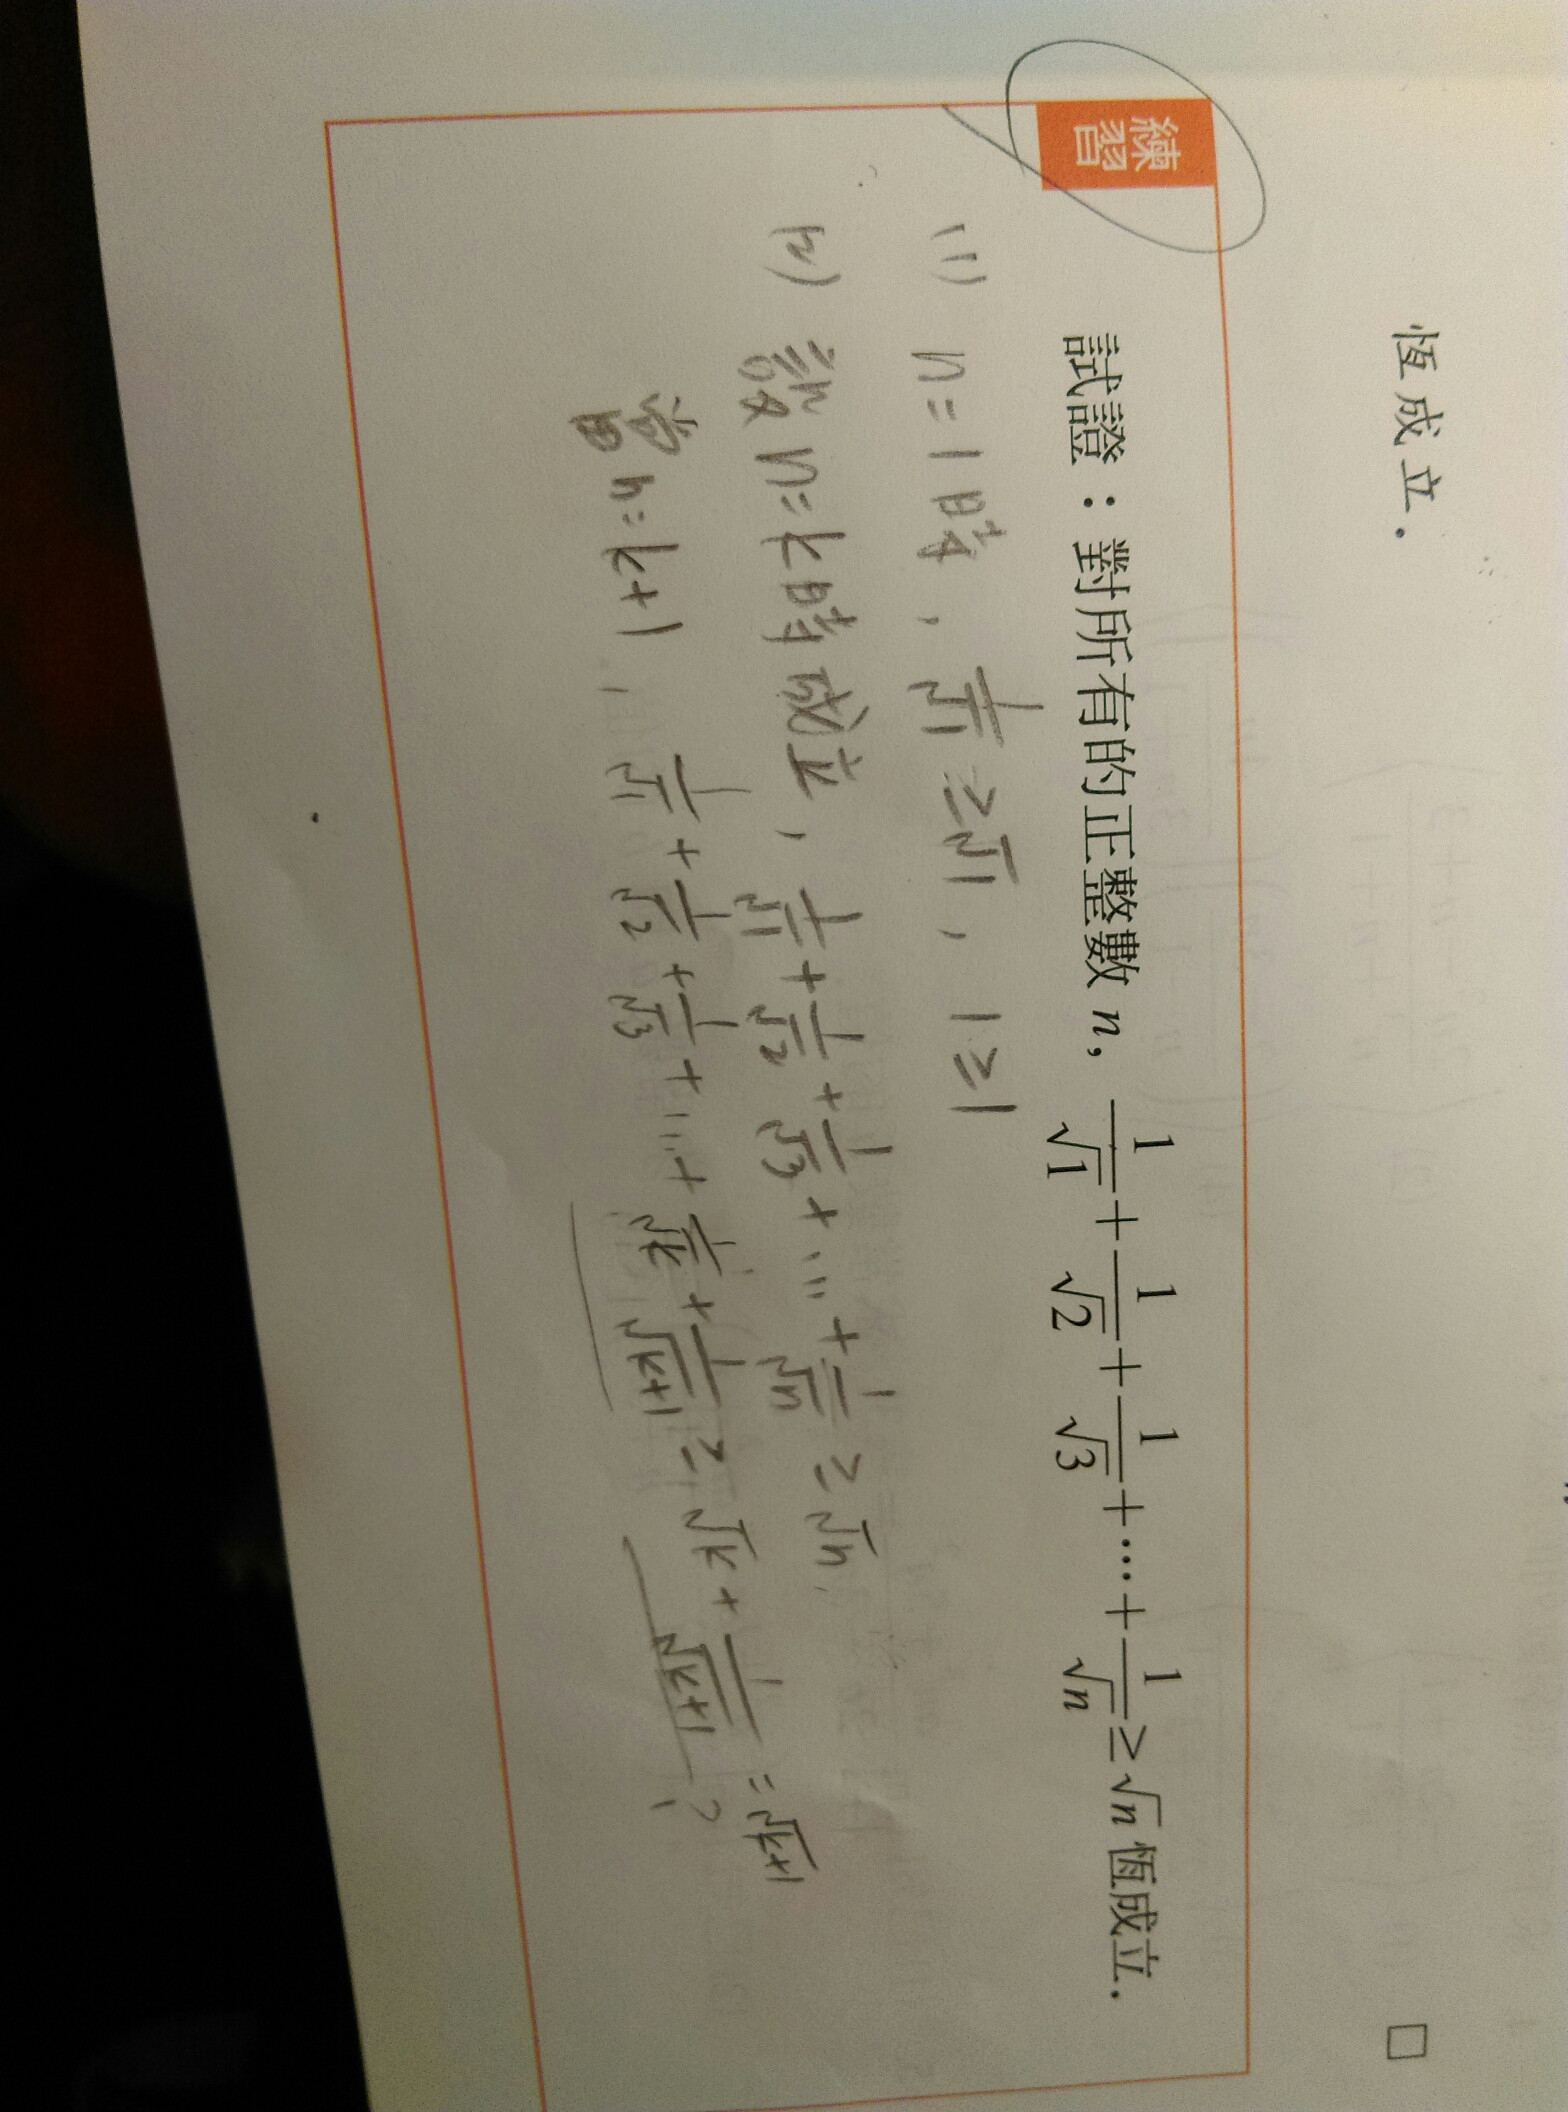 恆成立.
□
練習
試證：對所有的正整數 n, 1/√1 + 1/√2 + 1/√3 + ⋯ + 1/√n ≥ √n 恆成立.
(1) n=1時, 1/√1 ≥ √1, 1≥1
(2) 設 n=k時成立, 1/√1 + 1/√2 + 1/√3 + ... + 1/√n ≥ √n,
當 n=k+1, 1/√1 + 1/√2 + 1/√3 + ... + 1/√k + 1/√(k+1) ≥ √k + 1/√(k+1) = √(k+1)
?